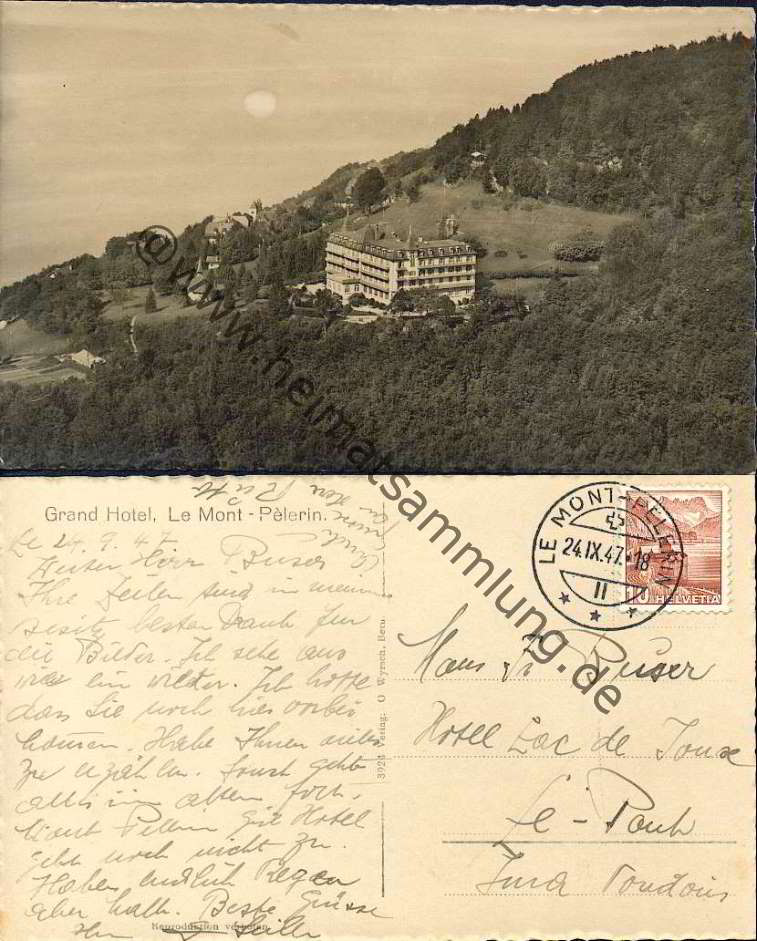 © www.heimatsammlung.de
Grand Hotel, Le Mont-Pèlerin.
24.9.47
Herr Buser
Ihre Zeilen sind in meinem
besten Dank für
die Bilder. Ich sehe aus
wie ein wilder. Ich hoffe
dass Sie noch hier vorbei
kommen. Habe Ihnen vieles
zu erzählen. Sonst geht
alles im alten fort.
Mont Pélerin Hotel
geht noch nicht zu.
Haben endlich Regen
aber kalt. Beste Grüsse
3924 Verlag: O Wyrsch, Bern
Reproduktion verboten
LE MONT-PÈLERIN
24.IX.47.-18
II
10 HELVETIA
Mons Fr Buser
Hotel Lac de Joux
Le-Pont
Jura Vaudois